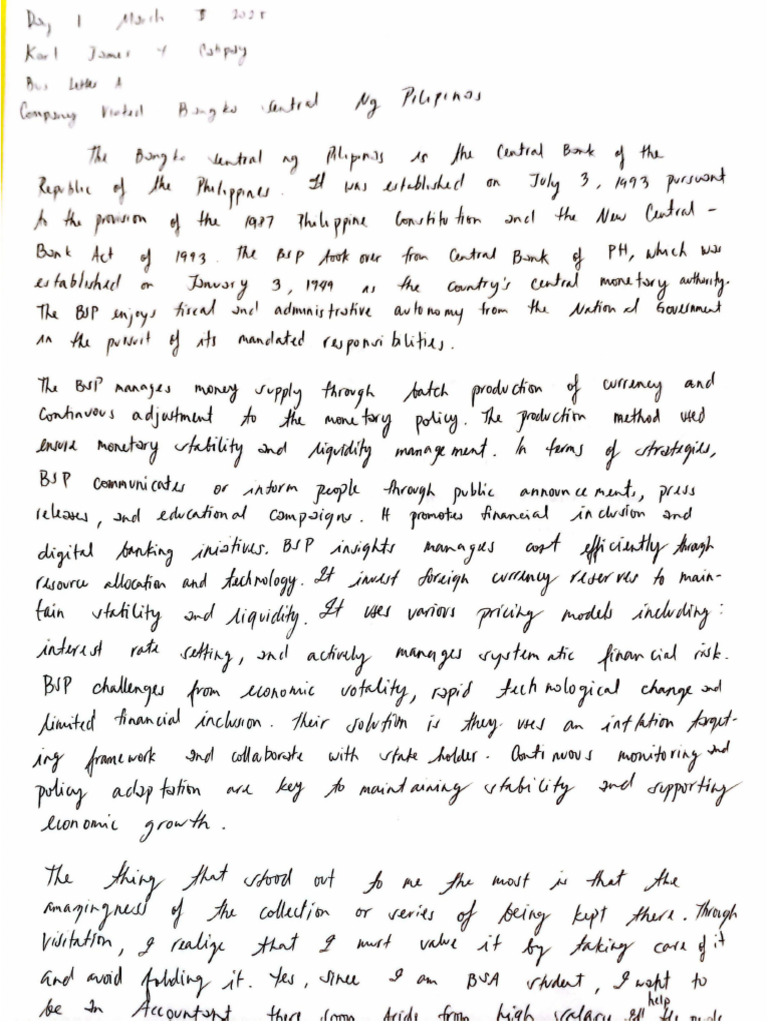 Day 1 March 3 2025
Karl James Y
Bus Letter A
Company Visited Bangko Sentral Ng Pilipinas
The Bangko Sentral ng Pilipinas is the Central Bank of the
Republic of the Philippines. It was established on July 3, 1993 pursuant
to the provision of the 1987 Philippine Constitution and the New Central-
Bank Act of 1993. The BSP took over from Central Bank of PH, which was
established on January 3, 1949 as the country's central monetary authority.
The BSP enjoys fiscal and administrative autonomy from the National Government
in the pursuit of its mandated responsibilities.
The BSP manages money supply through batch production of currency and
continuous adjustment to the monetary policy. The production method used
ensure monetary stability and liquidity management. In terms of strategies,
BSP communicates or inform people through public announcements, press
releases, and educational campaigns. It promotes financial inclusion and
digital banking iniatives. BSP insights manages cost efficiently through
resource allocation and technology. It invest foreign currency reserves to main-
tain stability and liquidity. It uses various pricing models including:
interest rate setting, and actively manages systematic financial risk.
BSP challenges from economic votality, rapid technological change and
limited financial inclusion. Their solution is they uses an inflation target-
ing framework and collaborate with state holder. Continuous monitoring and
policy adaptation are key to maintaining stability and supporting
economic growth.
The thing that stood out to me the most is that the
amazingness of the collection or series of being kept there. Through
visitation, I realize that I must value it by taking care of it
and avoid folding it. Yes, since I am BSA student, I want to
be in Accountant there soon. Aside from high salary help